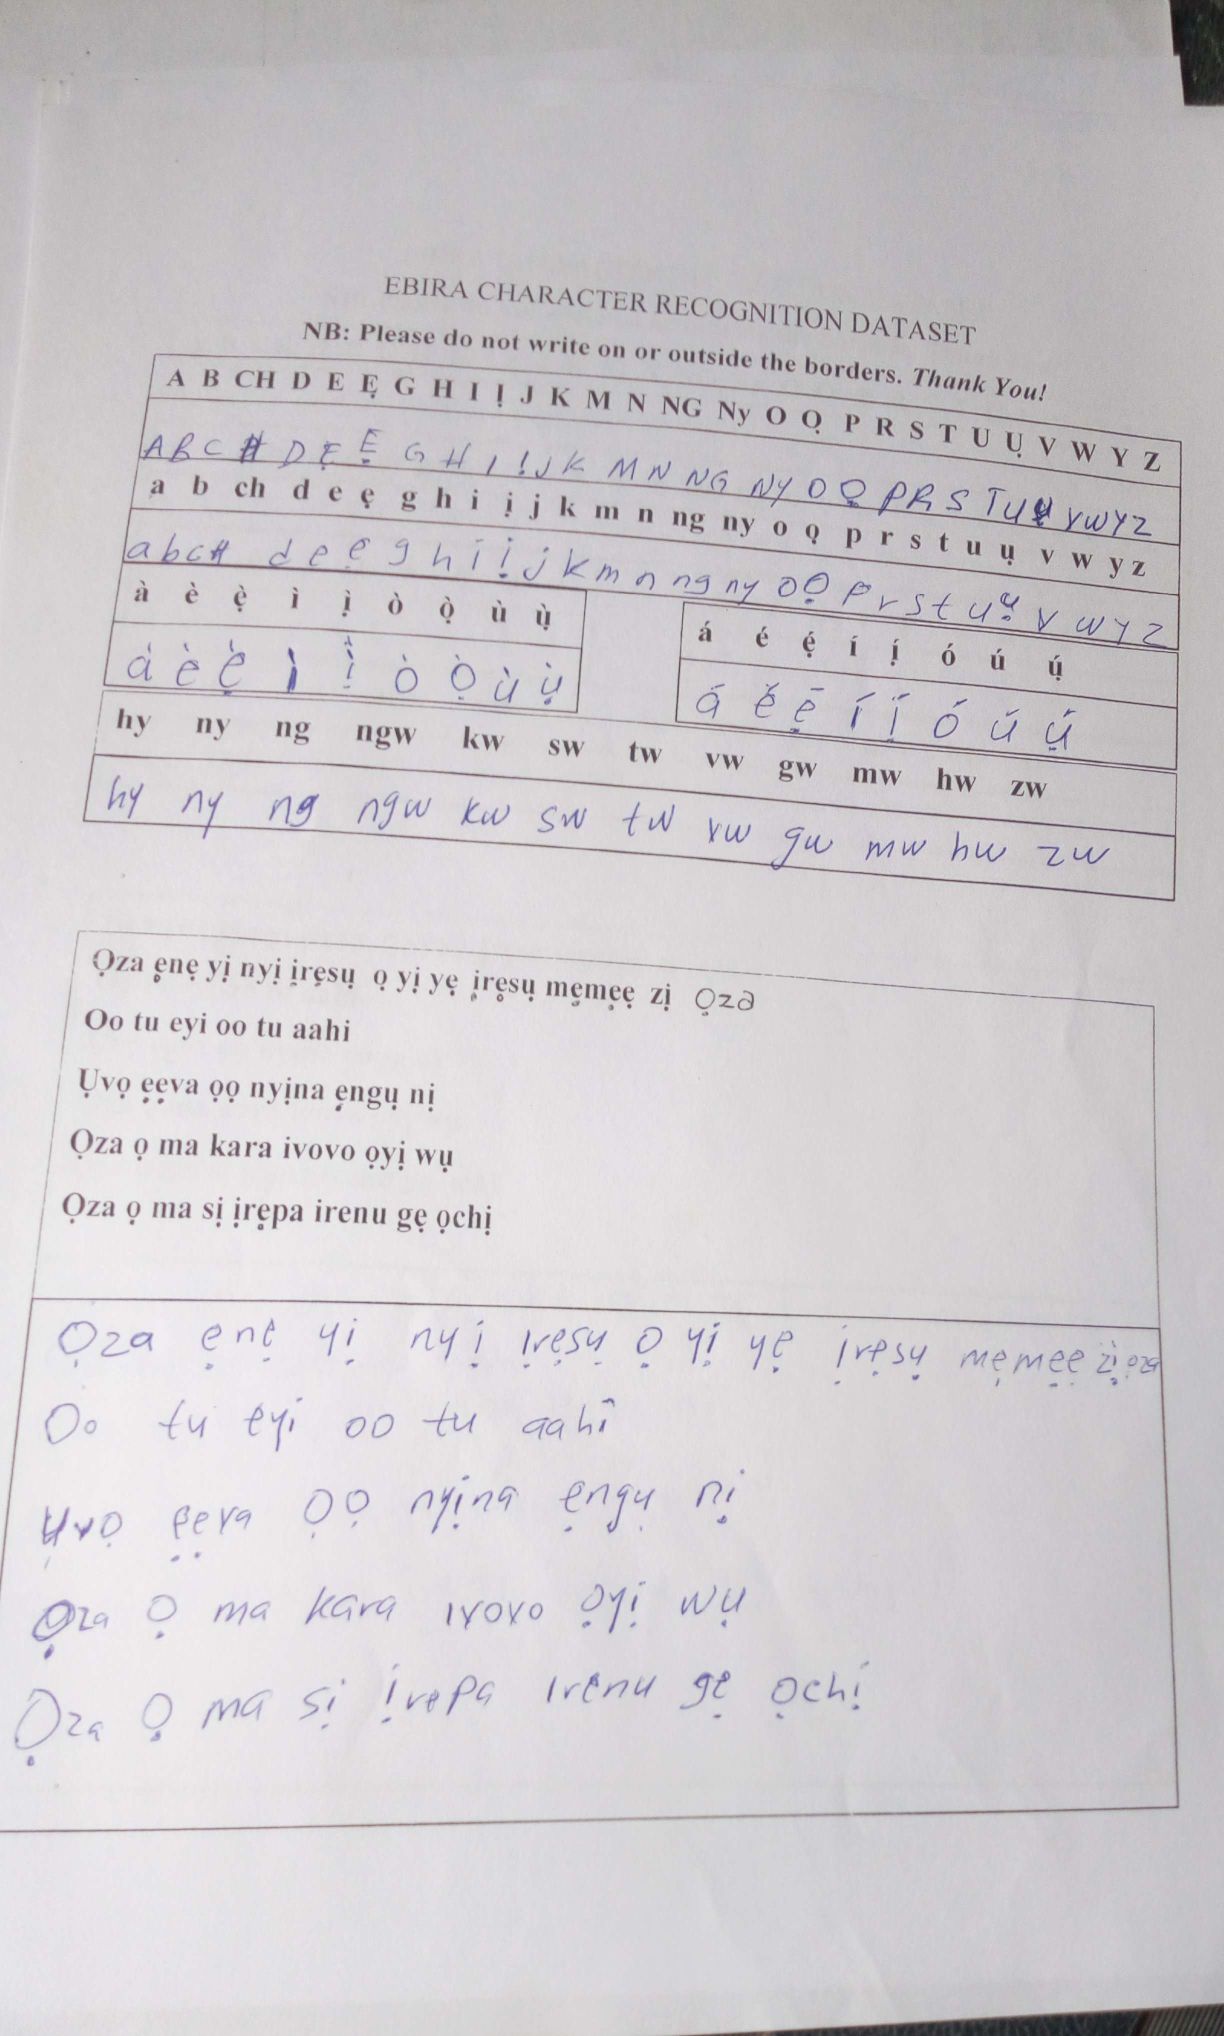 EBIRA CHARACTER RECOGNITION DATASET
NB: Please do not write on or outside the borders. Thank You!
A B CH D E Ẹ G H I Ị J K M N NG Ny O Ọ P R S T U Ụ V W Y Z
A B C H D Ẹ Ẹ G H I Ị J K M N NG NY O Ọ P R S T U Ụ V W Y Z
a b ch d e ẹ g h i ị j k m n ng ny o ọ p r s t u ụ v w y z
a b c H d e ẹ g h i ị j k m n ng ny o ọ p r s t u ụ v w y z
à è ẹ̀ ì ị̀ ò ọ̀ ù ụ̀
à è ẹ̀ ì ị̀ ò ọ̀ ù ụ̀
á é ẹ́ í ị́ ó ú ụ́
á é ẹ́ í ị́ ó ú ụ́
hy ny ng ngw kw sw tw vw gw mw hw zw
hy ny ng ngw kw sw tw vw gw mw hw zw
Ọza ẹnẹ yị nyị ịrẹsụ ọ yị yẹ ịrẹsụ mẹmẹẹ zị Ọza
Oo tu eyi oo tu aahi
Ụvọ ẹẹva ọọ nyịna ẹngụ nị
Ọza ọ ma kara ivovo ọyị wụ
Ọza ọ ma sị ịrẹpa irenu gẹ ọchị
Ọza ẹnẹ yị nyị ịrẹsụ ọ yị yẹ ịrẹsụ mẹmẹẹ zị ọza
Oo tu eyi oo tu aahi
Ụvọ ẹẹva ỌỌ nyịna ẹngụ nị
Ọza Ọ ma kara ivovo ọyị wụ
Ọza Ọ ma sị ịrepa irenu gẹ ọchị